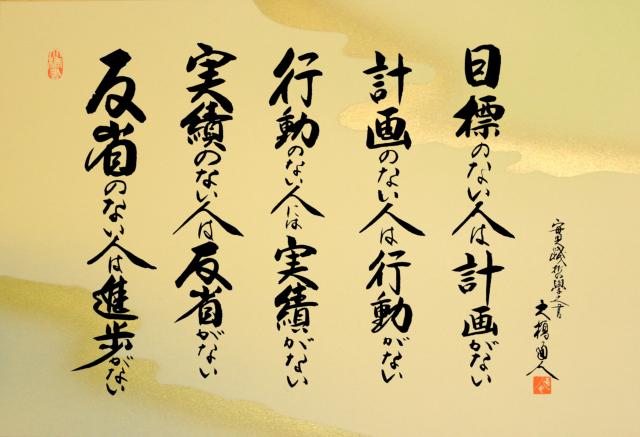 目標のない人は計画がない
計画のない人は行動がない
行動のない人には実績がない
実績のない人は反省がない
反省のない人は進歩がない